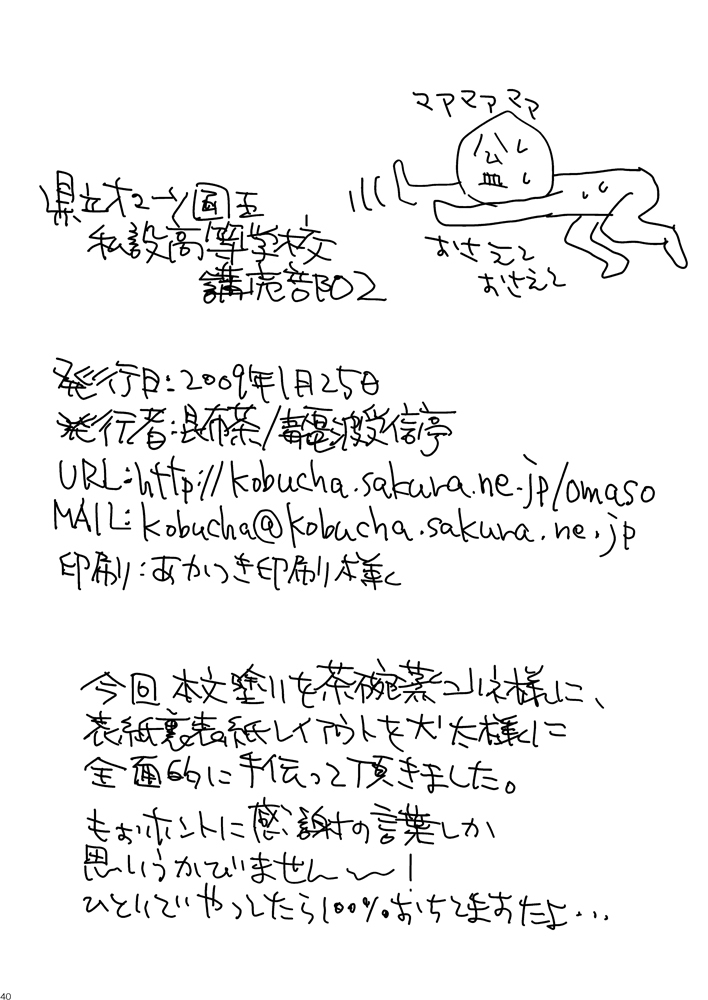 マアマアママ
県立オマーン国王
私設高等学校
講売部02
おさえて
おさえて
発行日:2009年1月25日
発行者:昆布茶/毒電波受信亭
URL:http://kobucha.sakura.ne.jp/omaso
MAIL:kobucha@kobucha.sakura.ne.jp
印刷:あかつき印刷様
今回本文塗りを茶碗蒸コルネ様に、
表紙裏表紙レイアウトを犬太様に
全面的に手伝って頂きました。
もぉホントに感謝の言葉しか
思いうかびません〜!
ひとりでやってたら100%おちてますたよ…
40